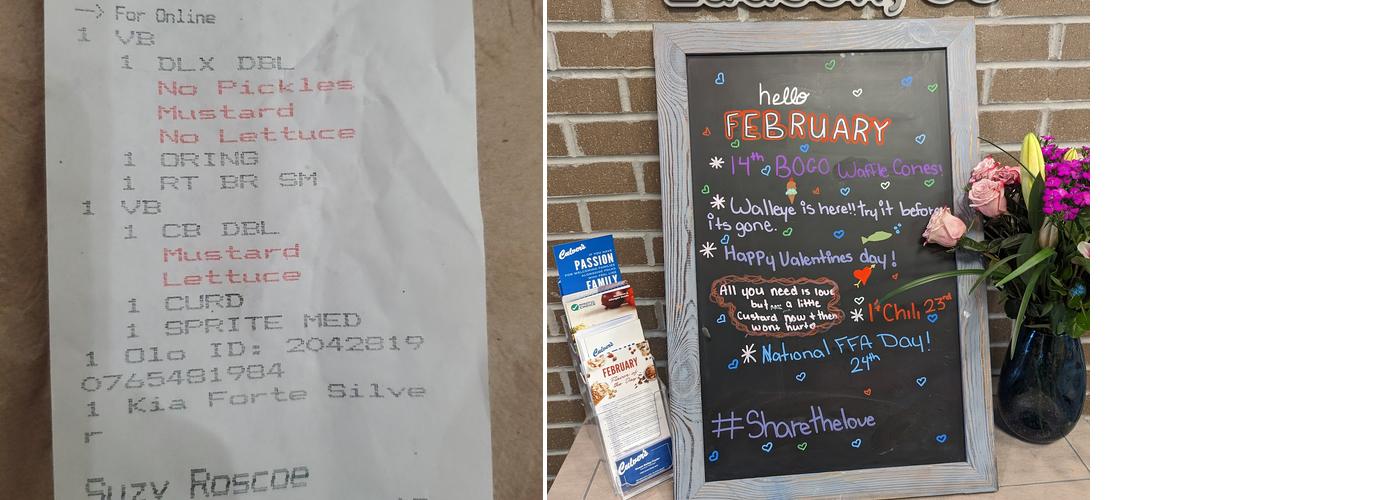 --> For Online
1 VB
1 DLX DBL
No Pickles
Mustard
No Lettuce
1 ORING
1 RT BR SM
1 VB
1 CB DBL
Mustard
Lettuce
1 CURD
1 SPRITE MED
1 Olo ID: 2042819
0765481984
1 Kia Forte Silve
r
Suzy Roscoe
hello
FEBRUARY
* 14th BOGO Waffle Cones!
* Walleye is here!! Try it before
its gone.
* Happy Valentines day!
All you need is love
but a little
Custard now + then
wont hurt
* 1¢ Chili 23rd
* National FFA Day!
24th
#Sharethelove
Culver's
PASSION
FAMILY
Culver's
FEBRUARY
Flavor of
the Day
Culver's